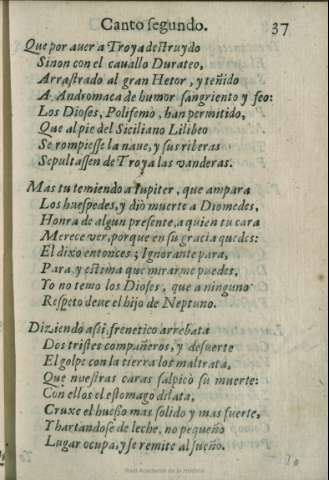 Canto segundo.
37
Que por auer a Troya destruydo
Sinon con el cauallo Durateo,
Arrastrado al gran Hetor, y teñido
A Andromaca de humor sangriento y feo:
Los Dioses, Polifemo, han permitido,
Que al pie del Siciliano Lilibeo
Se rompiesse la naue, y sus riberas
Sepultassen de Troya las vanderas.
Mas tu temiendo a Iupiter, que ampara
Los huespedes, y dio muerte a Diomedes,
Honra de algun presente, a quien tu cara
Merece ver, porque en su gracia quedes:
El dixo entonces; Ignorante para,
Para, y estima que mirarme puedes,
Yo no temo los Dioses, que a ninguno
Respeto deue el hijo de Neptuno.
Diziendo assi, frenetico arrebata
Dos tristes compañeros, y de suerte
El golpe con la tierra los maltrata,
Que nuestras caras salpicò su muerte:
Con ellos el estomago dilata,
Cruxe el huesso mas solido y mas fuerte,
Y hartandose de leche, no pequeño
Lugar ocupa, y se remite al sueño.
Real Academia de la Historia